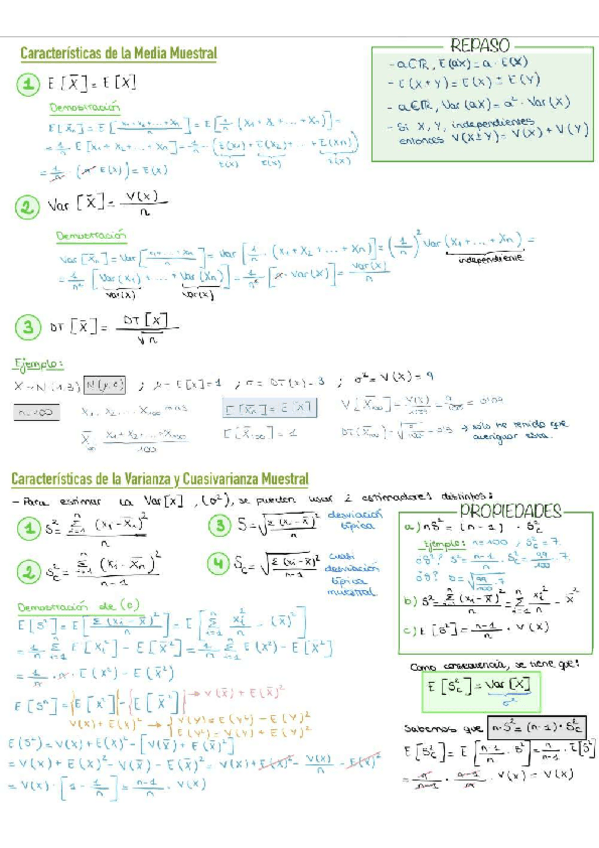 Características de la Media Muestral
REPASO
- a∈ℝ, E(aX) = a · E(X)
- E(X+Y) = E(X) ± E(Y)
- a∈ℝ, Var(aX) = a² · Var(X)
- Si X, Y, independientes
entonces V(X±Y) = V(X) + V(Y)
1 E[X̄] = E[X]
Demostración
E[X̄] = E[(X₁+X₂+...+Xₙ)/n] = E[1/n · (X₁+X₂+...+Xₙ)] =
= 1/n · E[X₁+X₂+...+Xₙ] = 1/n · (E(X₁)+E(X₂)+...+E(Xn))
E(X) E(X) E(X)
= 1/n · (n · E(X)) = E(X)
2 Var[X̄] = V(X)/n
Demostración
Var[X̄n] = Var[(X₁+...+Xn)/n] = Var[1/n · (X₁+X₂+...+Xn)] = (1/n)² Var(X₁+...+Xn) =
independiente
= 1/n² [Var(X₁)+...+Var(Xn)] = 1/n² [n·Var(X)] = Var(X)/n
Var(X) Var(X)
3 DT[X̄] = DT[X]/√n
Ejemplo:
X~N(1,3) N(μ,σ) ; μ = E[X] = 1 ; σ = DT(X) = 3 ; σ² = V(X) = 9
n=100 X₁, X₂, ... X₁₀₀ E[X̄n] = E[X] V[X̄₁₀₀] = V(X)/100 = 9/100 = 0'09
X̄ = (X₁+X₂+...+X₁₀₀)/100 E[X̄₁₀₀] = 1 → sólo he tenido que
averiguar esta.
Características de la Varianza y Cuasivarianza Muestral
- Para estimar la Var[X], (σ²), se pueden usar 2 estimadores distintos:
1 S² = Σ (Xi-X̄n)²/n
3 S = √(Σ(Xi-X̄)²/n) desviación
típica
2 Sc² = Σ (Xi-X̄n)²/(n-1)
4 Sc = √(Σ(Xi-X̄)²/(n-1)) cuasi
desviación
típica
muestral
PROPIEDADES
a) nS² = (n-1) · Sc²
Ejemplo: n=100 Sc² = 7
b) S² = Σ (Xi-X̄)²/n = Σ Xi²/n - X̄²
c) E[S²] = (n-1)/n · V(X)
Demostración de (c)
E[S²] = E[Σ(Xi-X̄)²/n] = E[Σ Xi²/n - (X̄)²]
= 1/n Σ E[Xi²] - E[X̄²] = 1/n Σ E(X²) - E[X̄²]
= 1/n · n · E(X²) - E(X̄²)
E[S²] = E[X²] - E[X̄²] → V(X̄) + E(X̄)²
V(X)+E(X)²
V(Y) = E(Y²) - E(Y)²
E(S²) = V(X)+E(X)² - [V(X̄)+E(X̄)²]
= V(X)+E(X)² - V(X̄) - E(X̄)² = V(X)+E(X)² - V(X)/n - E(X)²
= V(X) · [1 - 1/n] = (n-1)/n · V(X)
Como consecuencia, se tiene que:
E[Sc²] = Var[X]
σ²
Sabemos que n·S² = (n-1)·Sc²